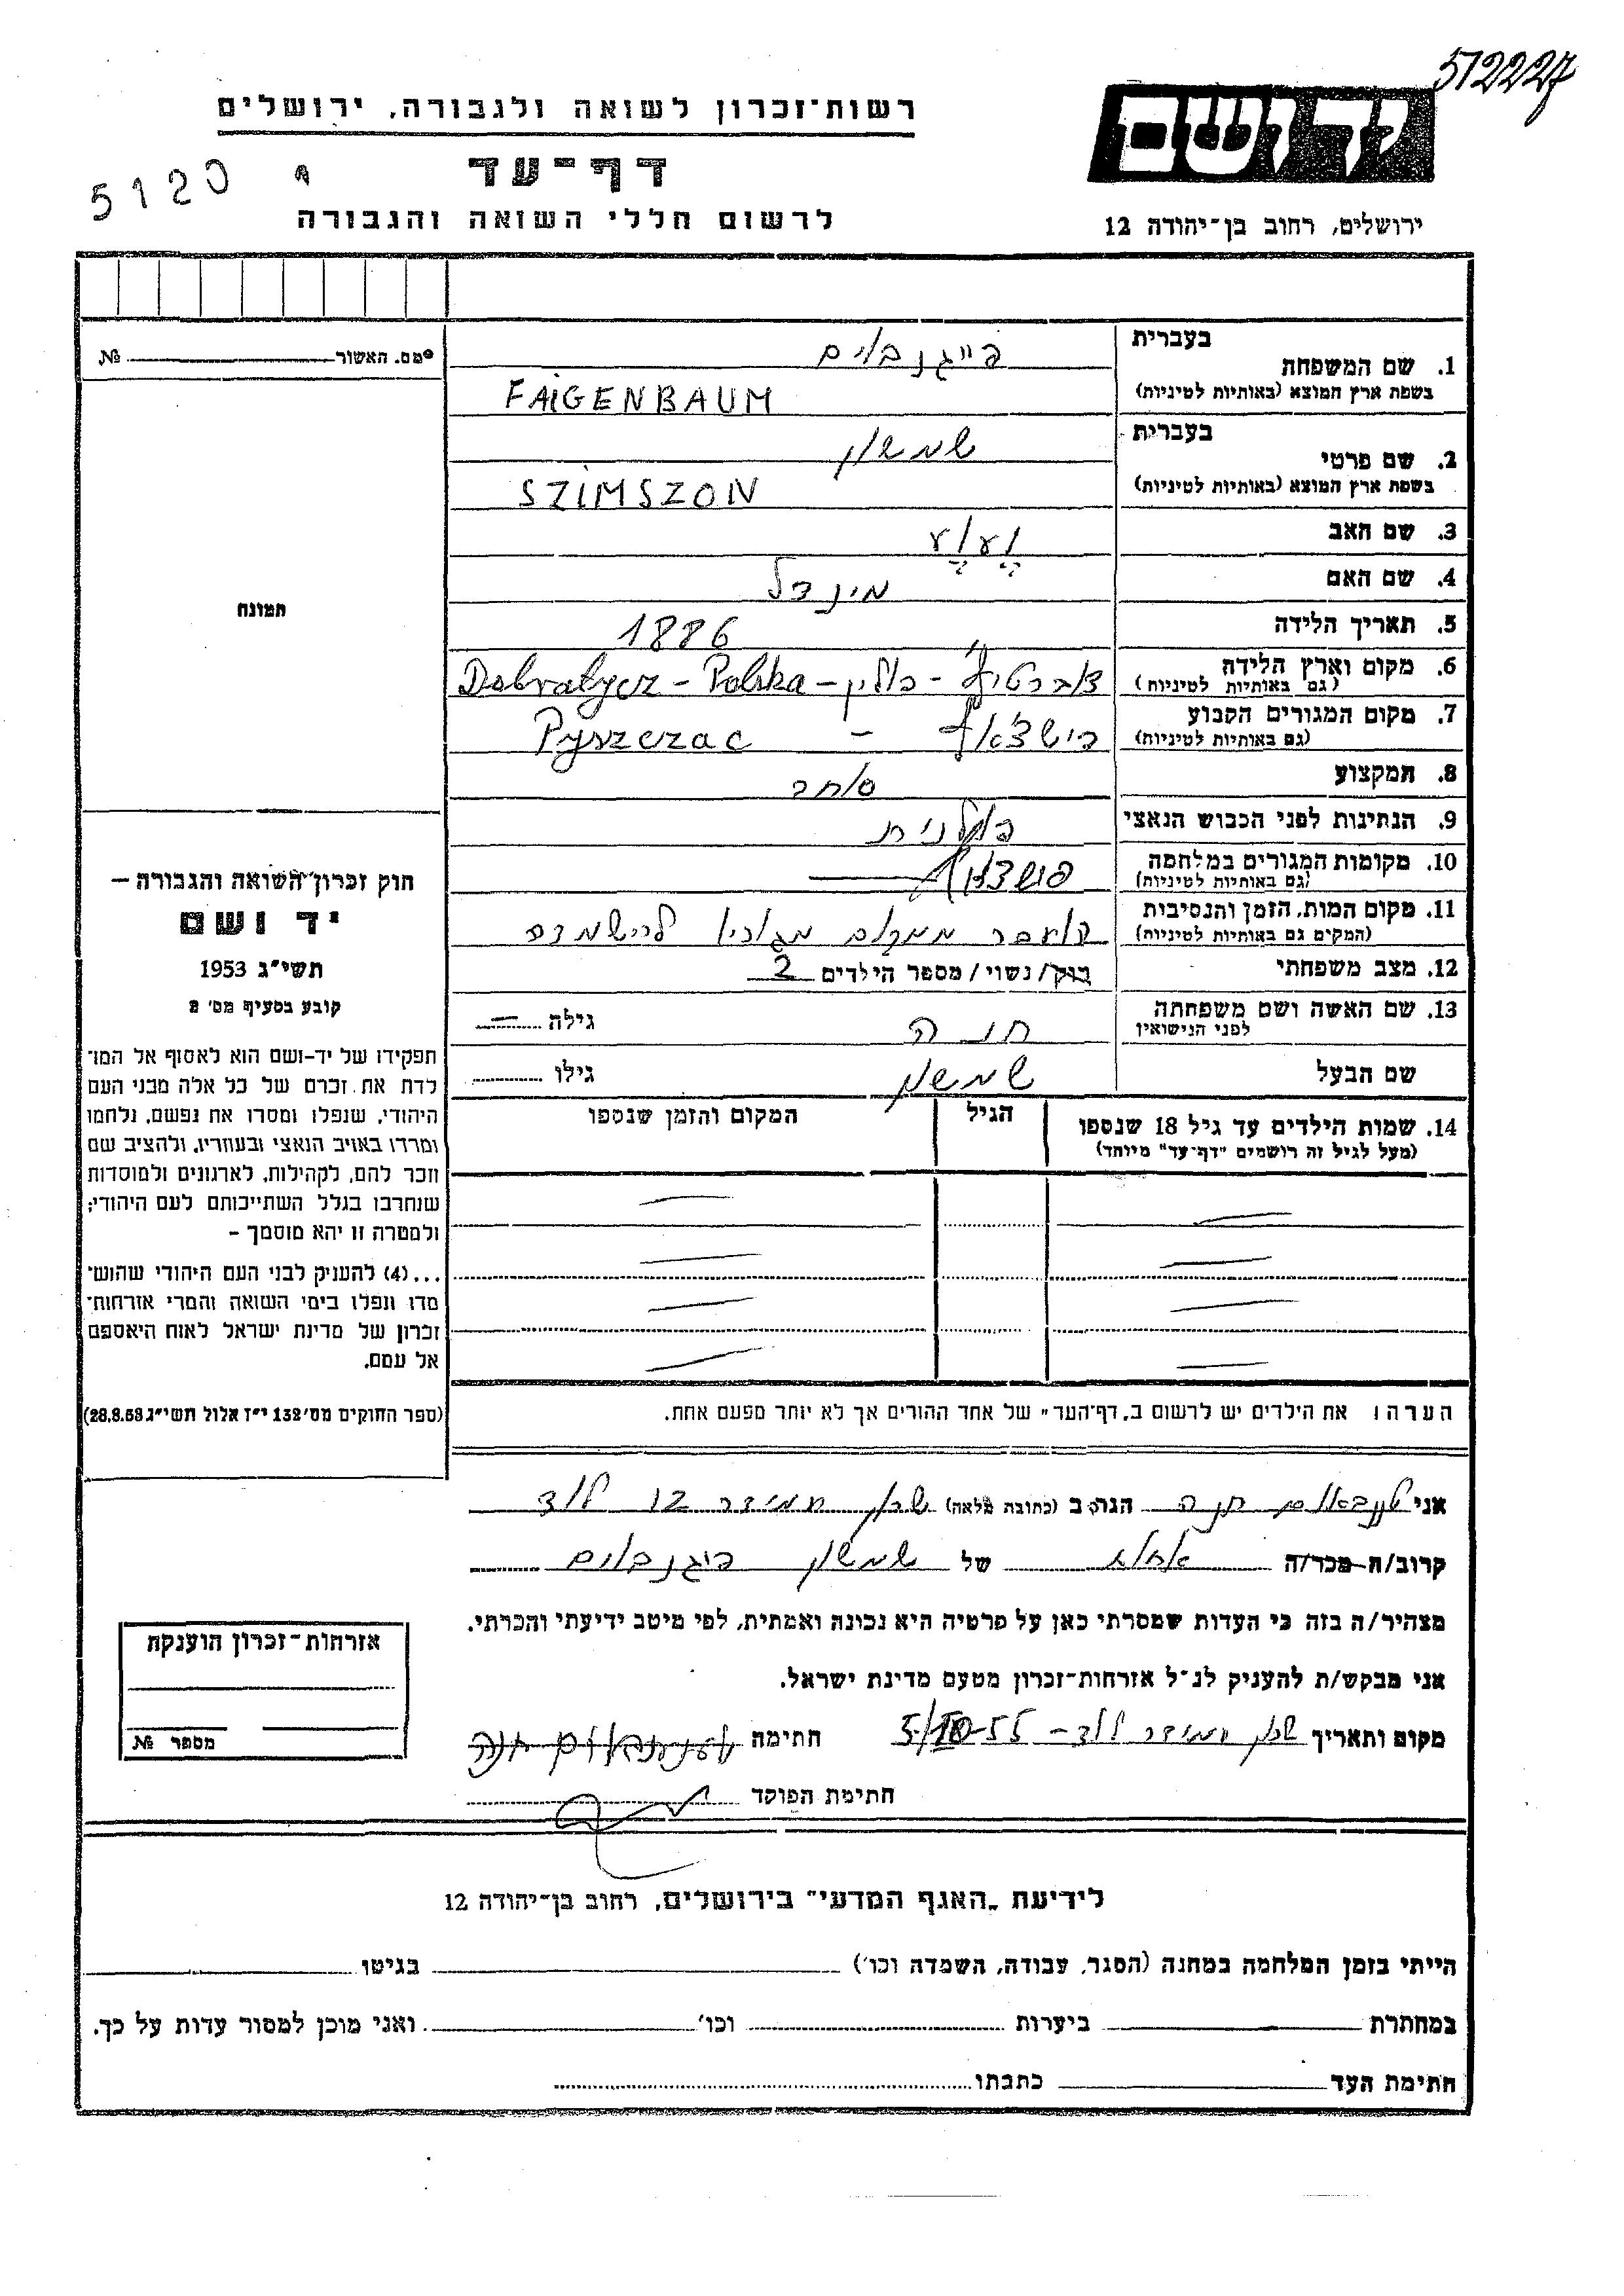 512227
רשות־זכרון לשואה ולגבורה, ירושלים
יד ושם
5120
דף־עד
לרשום חללי השואה והגבורה
ירושלים, רחוב בן־יהודה 12
בעברית פייגנבוים
1. שם המשפחה
בשפת ארץ המוצא (באותיות לטיניות) FAIGENBAUM
בעברית שמשון
2. שם פרטי
בשפת ארץ המוצא (באותיות לטיניות) SZIMSZON
3. שם האב
4. שם האם מינדל
5. תאריך הלידה 1886
6. מקום וארץ הלידה
(גם באותיות לטיניות) פולין - Dobratycz - Polska
7. מקום המגורים הקבוע
(גם באותיות לטיניות) פישצאץ - Pyszczac
8. המקצוע סוחר
9. הנתינות לפני הכבוש הנאצי פולנית
10. מקומות המגורים במלחמה
(גם באותיות לטיניות) פושצאץ
11. מקום המות, הזמן והנסיבות
(המקום גם באותיות לטיניות) הועבר ממקום מגוריו
12. מצב משפחתי רוק/נשוי/מספר הילדים 2
13. שם האשה ושם משפחתה
לפני הנישואין חנה גילה —
שם הבעל שמשון גילו
14. שמות הילדים עד גיל 18 שנספו הגיל המקום והזמן שנספו
(מעל לגיל זה רושמים "דף־עד" מיוחד)
הערה: את הילדים יש לרשום ב„דף־העד" של אחד ההורים אך לא יותר מפעם אחת.
מס. האשור № 
תמונה
חוק זכרון השואה והגבורה —
יד ושם
תשי"ג 1953
קובע בסעיף מס' 2
תפקידו של יד-ושם הוא לאסוף אל המו־
לדת את זכרם של כל אלה מבני העם
היהודי, שנפלו ומסרו את נפשם, נלחמו
ומרדו באויב הנאצי ובעוזריו, ולהציב שם
וזכר להם, לקהילות, לארגונים ולמוסדות
שנחרבו בגלל השתייכותם לעם היהודי;
ולמטרה זו יהא מוסמך —
...(4) להעניק לבני העם היהודי שהוש־
מדו ונפלו בימי השואה והמרי אזרחות־
זכרון של מדינת ישראל לאות היאספם
אל עמם.
(ספר החוקים מס' 132 י"ז אלול תשי"ג 28.8.53)
אני חנה הגר ב (כתובת מלאה) שכון עמידר 12 לוד
קרוב/ה מכר/ה של שמשון פיגנבוים
מצהיר/ה בזה כי העדות שמסרתי כאן על פרטיה היא נכונה ואמתית, לפי מיטב ידיעתי והכרתי.
אני מבקש/ת להעניק לנ"ל אזרחות־זכרון מטעם מדינת ישראל.
מקום ותאריך שכון עמידר לוד – חתימה
חתימת הפוקד
אזרחות־זכרון הוענקה
מספר №
לידיעת „האגף המדעי" בירושלים, רחוב בן־יהודה 12
הייתי בזמן המלחמה במחנה (הסגר, עבודה, השמדה וכו') בגיטו
במחתרת ביערות וכו' ואני מוכן למסור עדות על כך.
חתימת העד כתבתו